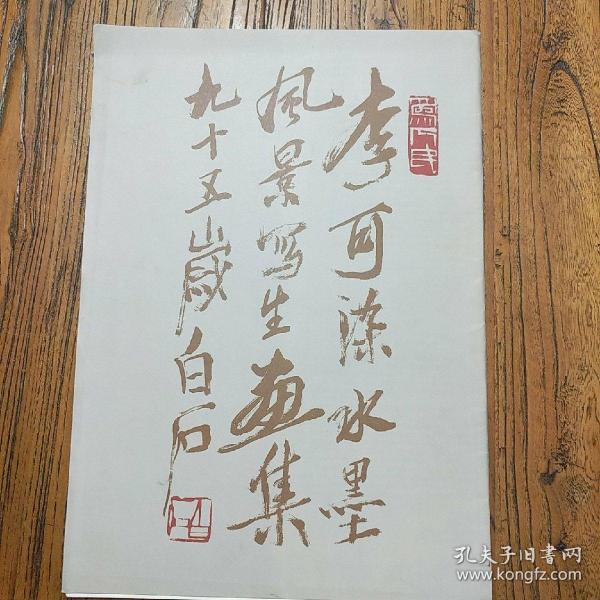 李可染水墨
风景写生画集
九十五岁白石
白石
孔夫子旧书网
www.kongfz.com